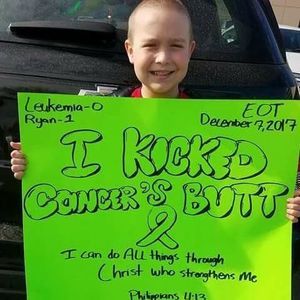 Leukemia-0
Ryan-1
EOT
December 7, 2017
I KICKED
CANCER'S BUTT
I can do ALL things through
Christ who strengthens Me
Philippians 4:13